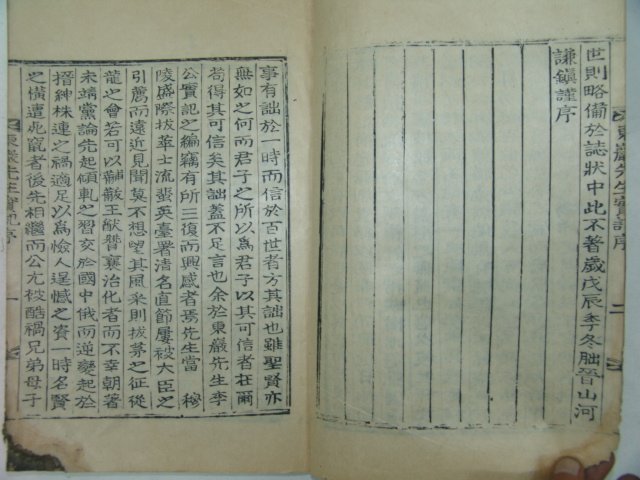 東巖先生實記序 二
世則略備於誌狀中此不著歲戊辰季冬朏晉山河
謙鎭謹序
事有詘於一時而信於百世者方其詘也雖聖賢亦
無如之何而君子之所以爲君子以其可信者在爾
苟得其可信矣其詘蓋不足言也余於東巖先生李
公實記之編竊有所三復而興感者焉先生當 穆
陵盛際拔萃士流蜚英臺署淸名直節屢被大臣之
引薦而遠近見聞莫不想望其風采則拔茅之征從
龍之會若可以黼黻王猷贊襄治化者而不幸朝著
未靖黨論先起傾軋之習交於國中俄而逆變起於
搢紳株連之禍適足以爲憸人逞憾之資一時名賢
之橫遭竄者後先相繼而公尤被酷禍兄弟母子
東巖先生實記序 一